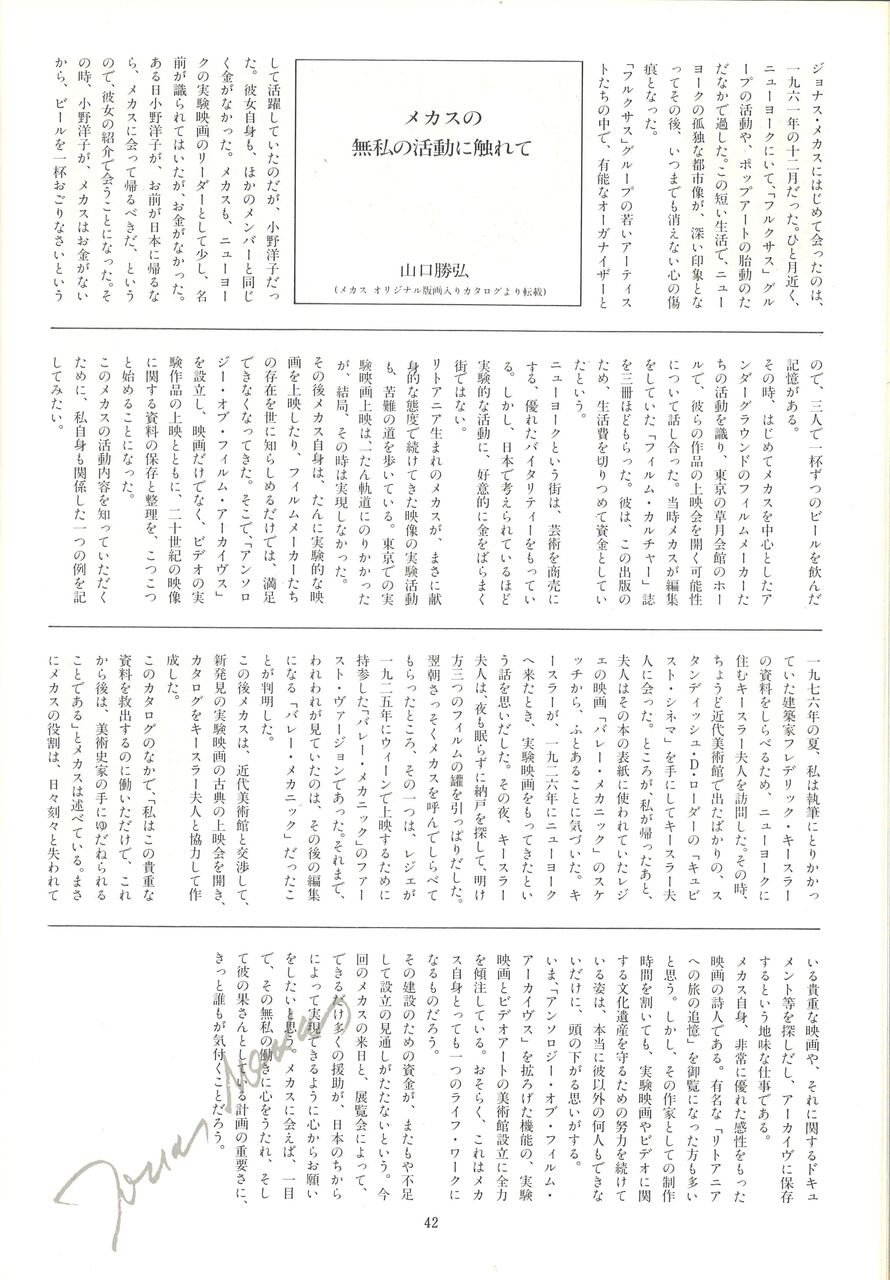 メカスの
無私の活動に触れて
山口勝弘
(メカス オリジナル版画入りカタログより転載)
ジョナス・メカスにはじめて会ったのは、
一九六一年の十二月だった。ひと月近く、
ニューヨークにいて、「フルクサス」グル
ープの活動や、ポップアートの胎動のた
だなかで過した。この短い生活で、ニュー
ヨークの孤独な都市像が、深い印象とな
ってその後、いつまでも消えない心の傷
痕となった。
「フルクサス」グループの若いアーティス
トたちの中で、有能なオーガナイザーと
して活躍していたのだが、小野洋子だっ
た。彼女自身も、ほかのメンバーと同じ
く金がなかった。メカスも、ニューヨー
クの実験映画のリーダーとして少し、名
前が識られてはいたが、お金がなかった。
ある日小野洋子が、お前が日本に帰るな
ら、メカスに会って帰るべきだ、という
ので、彼女の紹介で会うことになった。そ
の時、小野洋子が、メカスはお金がない
から、ビールを一杯おごりなさいという
ので、三人で一杯ずつのビールを飲んだ
記憶がある。
その時、はじめてメカスを中心としたア
ンダーグラウンドのフィルムメーカーた
ちの活動を識り、東京の草月会館のホー
ルで、彼らの作品の上映会を開く可能性
について話し合った。当時メカスが編集
をしていた「フィルム・カルチャー」誌
を三冊ほどもらった。彼は、この出版の
ため、生活費を切りつめて資金としてい
たという。
ニューヨークという街は、芸術を商売に
する、優れたバイタリティーをもってい
る。しかし、日本で考えられているほど
実験的な活動に、好意的に金をばらまく
街ではない。
リトアニア生まれのメカスが、まさに献
身的な態度で続けてきた映像の実験活動
も、苦難の道を歩いている。東京での実
験映画上映は、一たん軌道にのりかかった
が、結局、その時は実現しなかった。
その後メカス自身は、たんに実験的な映
画を上映したり、フィルムメーカーたち
の存在を世に知らしめるだけでは、満足
できなくなってきた。そこで「アンソロ
ジー・オブ・フィルム・アーカイヴス」
を設立し、映画だけでなく、ビデオの実
験作品の上映とともに、二十世紀の映像
に関する資料の保存と整理を、こつこつ
と始めることになった。
このメカスの活動内容を知っていただく
ために、私自身も関係した一つの例を記
してみたい。
一九七六年の夏、私は執筆にとりかかっ
ていた建築家フレデリック・キースラー
の資料をしらべるため、ニューヨークに
住むキースラー夫人を訪問した。その時、
ちょうど近代美術館で出たばかりの、ス
タンディッシュ・D・ローダーの「キュビ
スト・シネマ」を手にしてキースラー夫
人に会った。ところが、私が帰ったあと、
夫人はその本の表紙に使われていたレジ
ェの映画「バレー・メカニック」のスケ
ッチから、ふとあることに気づいた。キ
ースラーが、一九二六年にニューヨーク
へ来たとき、実験映画をもってきたとい
う話を思いだした。その夜、キースラー
夫人は、夜も眠らずに納戸を探して、明け
方三つのフィルムの罐を引っぱりだした。
翌朝さっそくメカスを呼んでしらべて
もらったところ、その一つは、レジェが
一九二五年にウィーンで上映するために
持参した「バレー・メカニック」のファー
スト・ヴァージョンであった。それまで、
われわれが見ていたのは、その後の編集
になる「バレー・メカニック」だったこ
とが判明した。
この後メカスは、近代美術館と交渉して、
新発見の実験映画の古典の上映会を開き、
カタログをキースラー夫人と協力して作
成した。
このカタログのなかで、「私はこの貴重な
資料を救出するのに働いただけで、これ
から後は、美術史家の手にゆだねられる
ことである」とメカスは述べている。まさ
にメカスの役割は、日々刻々と失われて
いる貴重な映画や、それに関するドキュ
メント等を探しだし、アーカイヴに保存
するという地味な仕事である。
メカス自身、非常に優れた感性をもった
映画の詩人である。有名な「リトアニア
への旅の追憶」を御覧になった方も多い
と思う。しかし、その作家としての制作
時間を割いても、実験映画やビデオに関
する文化遺産を守るための努力を続けて
いる姿は、本当に彼以外の何人もできな
いだけに、頭の下がる思いがする。
いま「アンソロジー・オブ・フィルム・
アーカイヴス」を拡ろげた機能の、実験
映画とビデオアートの美術館設立に全力
を傾注している。おそらく、これはメカ
ス自身とっても一つのライフ・ワークに
なるものだろう。
その建設のための資金が、またもや不足
して設立の見通しがたたないという。今
回のメカスの来日と、展覧会によって、
できるだけ多くの援助が、日本のちから
によって実現できるように心からお願い
をしたいと思う。メカスに会えば、一目
で、その無私の働きに心をうたれ、そし
て彼の果さんとしている計画の重要さに、
きっと誰もが気付くことだろう。
Jonas Mekas
42